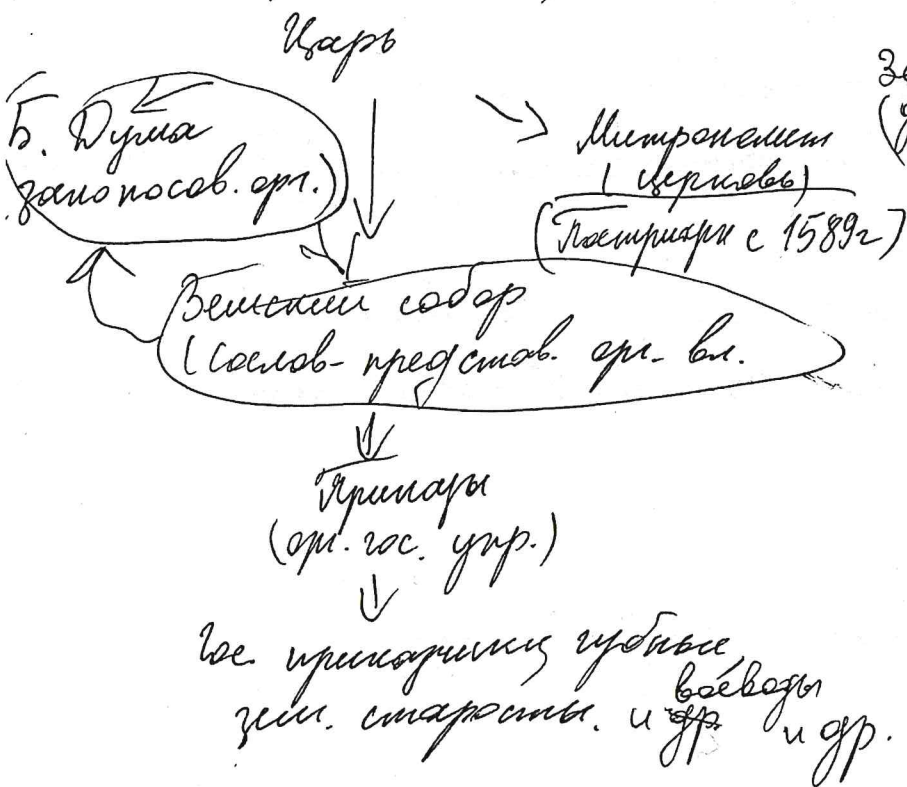 Царь
Б. Дума
законосов. орг.)
Митрополит
(церковь)
(Патриарх с 1589г)
Земский собор
(сослов-представ. орг. вл.
Приказы
(орг. гос. упр.)
Гос. приказчики, губные,
зем. старосты. и др воеводы и др.